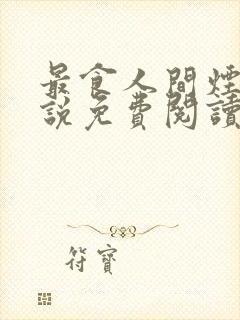 最食人間煙
說免費閱讀
符寶